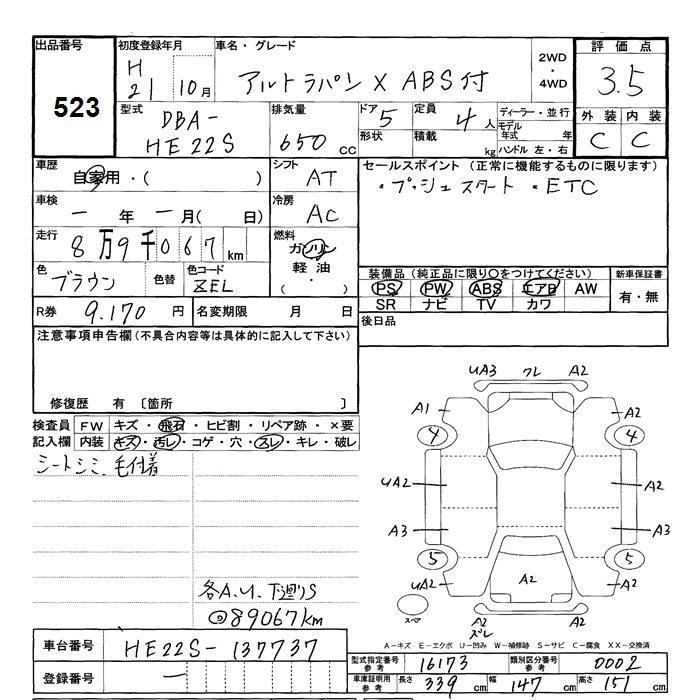 出品番号 初度登録年月 車名・グレード 2WD・4WD 評価点
523 H21 10月 アルトラパン X ABS付 3.5
型式 排気量 ドア 5 定員 4人 ディーラー・並行 外装 内装
DBA-HE22S 650cc 形状 積載 kg モデル年式 年 C C
ハンドル 左・右
車歴 シフト セールスポイント (正常に機能するものに限ります)
自家用・( ) AT ・プッシュスタート ・ETC
車検 一年一月( 日) 冷房 AC
走行 8万9千067km 燃料 ガソリン
軽油
( ・ )
色 ブラウン 色替 色コード ZEL
装備品(純正品に限り○をつけてください) 新車保証書
PS PW ABS エアB AW 有・無
SR ナビ TV カワ
R券 9.170円 名変期限 月 日 後日品
注意事項申告欄(不具合内容等は具体的に記入して下さい)
修復歴 有 〔箇所 〕
検査員記入欄 FW キズ・飛石・ヒビ割・リペア跡・×要
内装 キズ・汚レ・コゲ・穴・スレ・キレ・破レ
シートシミ 毛付着
各A.U.下廻りS
@89067km
UA3 ワレ A2
A1 A2
4 4
UA2 A2
A3 A3
5 5
UA2 A2 A2
スペア A2 ズレ A2
A-キズ E-エクボ U-凹み W-補修跡 S-サビ C-腐食 XX-交換済
車台番号 HE22S-137737
登録番号 一
型式指定番号参考 16173 類別区分番号参考 0002
車庫証明用参考 長さ 339cm 幅 147cm 高さ 151cm